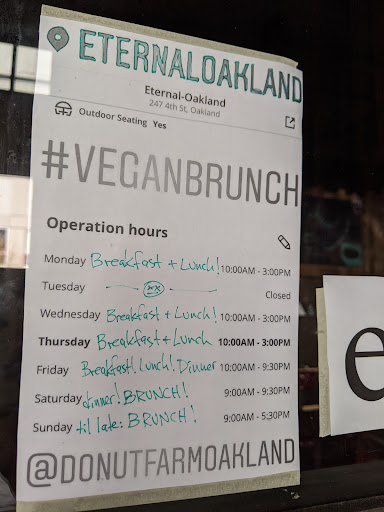 ETERNALOAKLAND
Eternal-Oakland
247 4th St, Oakland
Outdoor Seating Yes
#VEGANBRUNCH
Operation hours
Monday Breakfast + Lunch! 10:00AM - 3:00PM
Tuesday Closed
Wednesday Breakfast + Lunch! 10:00AM - 3:00PM
Thursday Breakfast + Lunch 10:00AM - 3:00PM
Friday Breakfast! Lunch! Dinner 10:00AM - 9:30PM
Saturday dinner! BRUNCH! 9:00AM - 9:30PM
Sunday til late: BRUNCH! 9:00AM - 5:30PM
@DONUTFARMOAKLAND
e